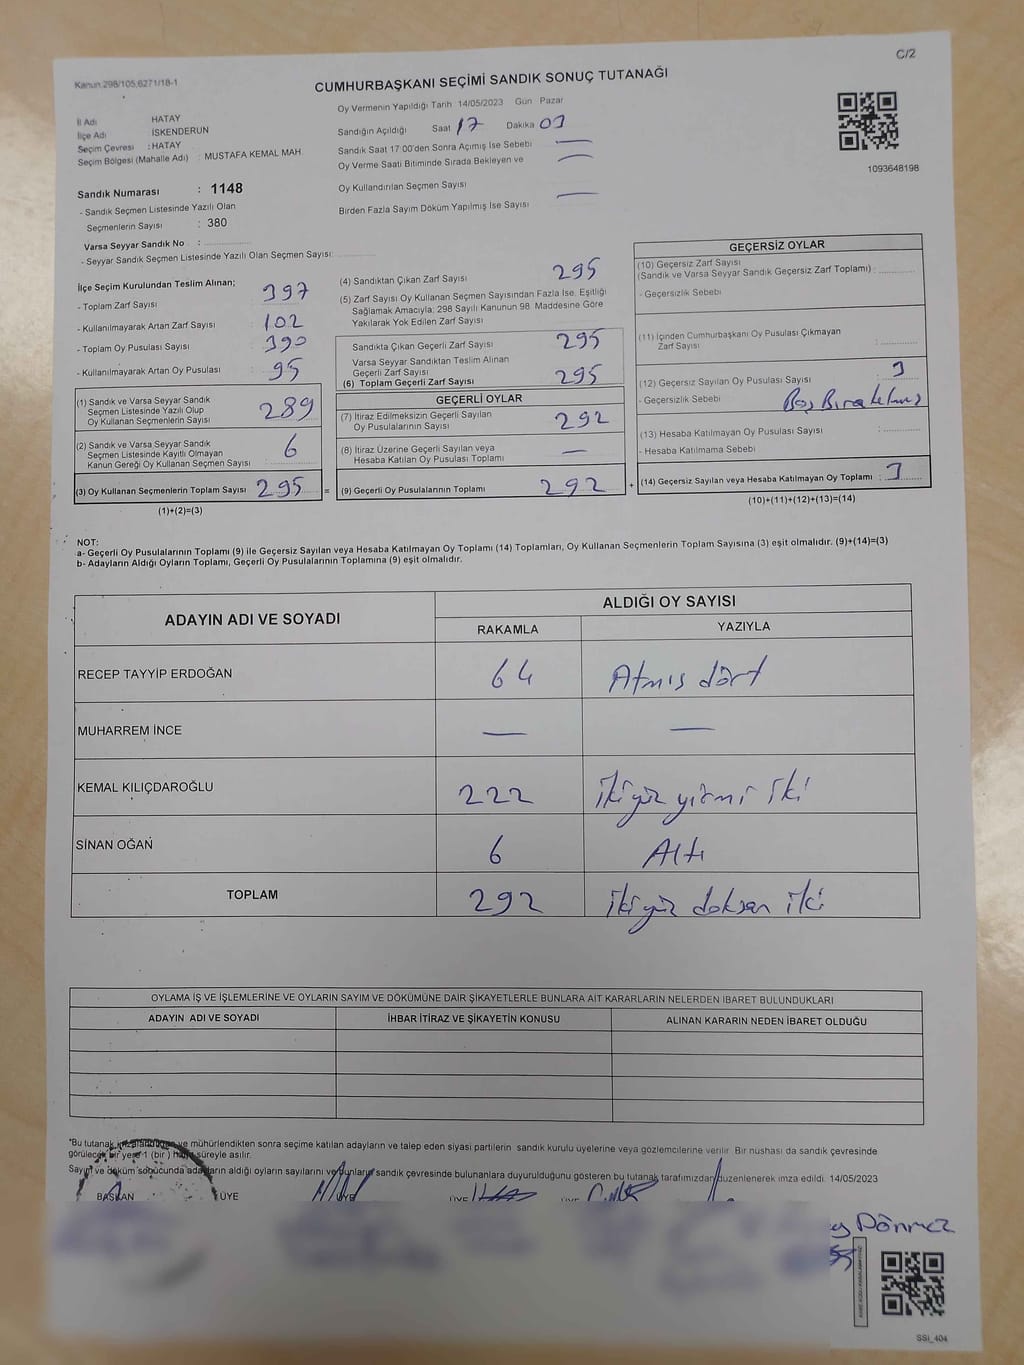 C/2
Kanun:298/105,6271/18-1
CUMHURBAŞKANI SEÇİMİ SANDIK SONUÇ TUTANAĞI
İl Adı HATAY
İlçe Adı İSKENDERUN
Seçim Çevresi : HATAY
Seçim Bölgesi (Mahalle Adı) : MUSTAFA KEMAL MAH.
Sandık Numarası : 1148
- Sandık Seçmen Listesinde Yazılı Olan
Seçmenlerin Sayısı : 380
Varsa Seyyar Sandık No :
- Seyyar Sandık Seçmen Listesinde Yazılı Olan Seçmen Sayısı:
Oy Vermenin Yapıldığı Tarih 14/05/2023 Gün Pazar
Sandığın Açıldığı Saat 17 Dakika 03
Sandık Saat 17:00'den Sonra Açımış İse Sebebi —
Oy Verme Saati Bitiminde Sırada Bekleyen ve —
Oy Kullandırılan Seçmen Sayısı
Birden Fazla Sayım Döküm Yapılmış İse Sayısı —
1093648198
İlçe Seçim Kurulundan Teslim Alınan;
- Toplam Zarf Sayısı 397
- Kullanılmayarak Artan Zarf Sayısı 102
- Toplam Oy Pusulası Sayısı 390
- Kullanılmayarak Artan Oy Pusulası 95
(1) Sandık ve Varsa Seyyar Sandık
Seçmen Listesinde Yazılı Olup
Oy Kullanan Seçmenlerin Sayısı 289
(2) Sandık ve Varsa Seyyar Sandık
Seçmen Listesinde Kayıtlı Olmayan
Kanun Gereği Oy Kullanan Seçmen Sayısı 6
(3) Oy Kullanan Seçmenlerin Toplam Sayısı 295 =
(1)+(2)=(3)
(4) Sandıktan Çıkan Zarf Sayısı 295
(5) Zarf Sayısı Oy Kullanan Seçmen Sayısından Fazla İse, Eşitliği
Sağlamak Amacıyla; 298 Sayılı Kanunun 98. Maddesine Göre
Yakılarak Yok Edilen Zarf Sayısı
Sandıkta Çıkan Geçerli Zarf Sayısı 295
Varsa Seyyar Sandıktan Teslim Alınan
Geçerli Zarf Sayısı
(6) Toplam Geçerli Zarf Sayısı 295
GEÇERLİ OYLAR
(7) İtiraz Edilmeksizin Geçerli Sayılan
Oy Pusulalarının Sayısı 292
(8) İtiraz Üzerine Geçerli Sayılan veya
Hesaba Katılan Oy Pusulası Toplamı —
(9) Geçerli Oy Pusulalarının Toplamı 292 +
GEÇERSİZ OYLAR
(10) Geçersiz Zarf Sayısı
(Sandık ve Varsa Seyyar Sandık Geçersiz Zarf Toplamı) :
- Geçersizlik Sebebi
(11) İçinden Cumhurbaşkanı Oy Pusulası Çıkmayan
Zarf Sayısı :
(12) Geçersiz Sayılan Oy Pusulası Sayısı : 3
- Geçersizlik Sebebi Boş Bırakılmış
(13) Hesaba Katılmayan Oy Pusulası Sayısı :
- Hesaba Katılmama Sebebi
(14) Geçersiz Sayılan veya Hesaba Katılmayan Oy Toplamı : 3
(10)+(11)+(12)+(13)=(14)
NOT:
a- Geçerli Oy Pusulalarının Toplamı (9) ile Geçersiz Sayılan veya Hesaba Katılmayan Oy Toplamı (14) Toplamları, Oy Kullanan Seçmenlerin Toplam Sayısına (3) eşit olmalıdır. (9)+(14)=(3)
b- Adayların Aldığı Oyların Toplamı, Geçerli Oy Pusulalarının Toplamına (9) eşit olmalıdır.
ADAYIN ADI VE SOYADI ALDIĞI OY SAYISI
RAKAMLA YAZIYLA
RECEP TAYYİP ERDOĞAN 64 Atmış dört
MUHARREM İNCE — —
KEMAL KILIÇDAROĞLU 222 İkiyüz yirmi iki
SİNAN OĞAN 6 Altı
TOPLAM 292 İkiyüz doksan iki
OYLAMA İŞ VE İŞLEMLERİNE VE OYLARIN SAYIM VE DÖKÜMÜNE DAİR ŞİKAYETLERLE BUNLARA AİT KARARLARIN NELERDEN İBARET BULUNDUKLARI
ADAYIN ADI VE SOYADI İHBAR İTİRAZ VE ŞİKAYETİN KONUSU ALINAN KARARIN NEDEN İBARET OLDUĞU
*Bu tutanak imzalandıktan ve mühürlendikten sonra seçime katılan adayların ve talep eden siyasi partilerin sandık kurulu üyelerine veya gözlemcilerine verilir. Bir nushası da sandık çevresinde
görülecek bir yere 1 (bir) hafta süreyle asılır.
Sayım ve döküm sonucunda adayların aldığı oyların sayılarını ve bunların sandık çevresinde bulunanlara duyurulduğunu gösteren bu tutanak tarafımızdan düzenlenerek imza edildi. 14/05/2023
BAŞKAN ÜYE ÜYE ÜYE ÜYE
Dönmez
SSİ_404